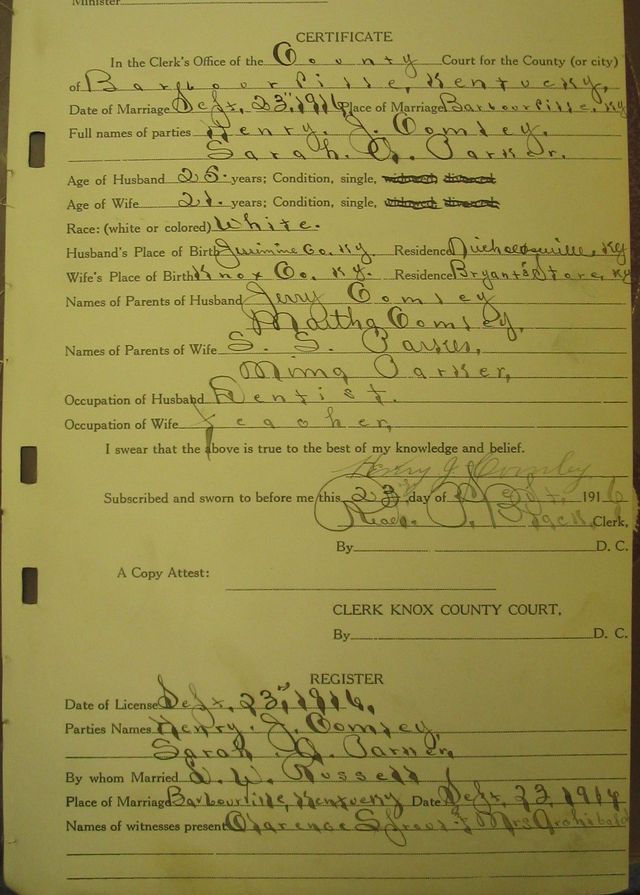 Minister
CERTIFICATE
In the Clerk's Office of the County Court for the County (or city)
of Barbourville, Kentucky,
Date of Marriage Sept, 23rd, 1916, Place of Marriage Barbourville, Ky
Full names of parties Henry. J. Comley,
Sarah. A. Parker.
Age of Husband 25. years; Condition, single, widowed, divorced
Age of Wife 21. years; Condition, single, widowed, divorced
Race: (white or colored) White.
Husband's Place of Birth Jessimine Co. Ky. Residence Nicholasville, Ky
Wife's Place of Birth Knox Co, Ky. Residence Bryants Store, Ky
Names of Parents of Husband Jerry Comley
Martha Comley,
Names of Parents of Wife S. S. Parker,
Mima Parker,
Occupation of Husband Dentist.
Occupation of Wife Teacher,
I swear that the above is true to the best of my knowledge and belief.
Henry J. Comley
Subscribed and sworn to before me this 23 day of Sept, 1916
Read. P. Black, Clerk,
By D. C.
A Copy Attest:
CLERK KNOX COUNTY COURT,
By D. C.
REGISTER
Date of License Sept, 23rd, 1916,
Parties Names Henry. J. Comley,
Sarah A. Parker,
By whom Married W. Russell
Place of Marriage Barbourville, Kentucky Date Sept, 23, 1916
Names of witnesses present Clarence & Mrs Archibald